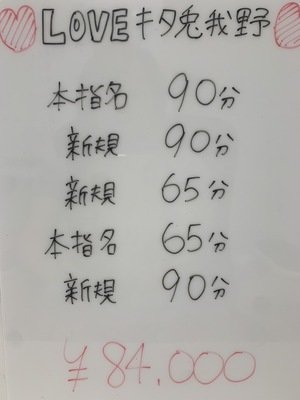 LOVEキタ兎我野
本指名 90分
新規 90分
新規 65分
本指名 65分
新規 90分
¥84.000